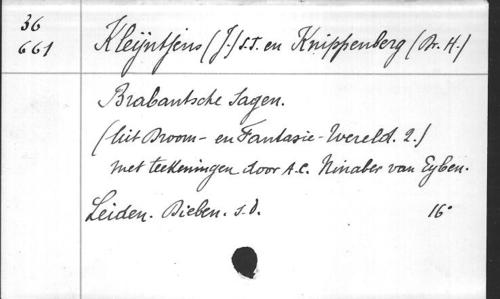 36
661
Kleijntjens (J.) S.J. en Knippenberg (Dr. H.)
Brabantsche Sagen.
(Uit Droom- en Fantasie-Wereld. 2.)
met teekeningen door A.C. Ninaber van Eyben.
Leiden. Dieben. s.d. 16°